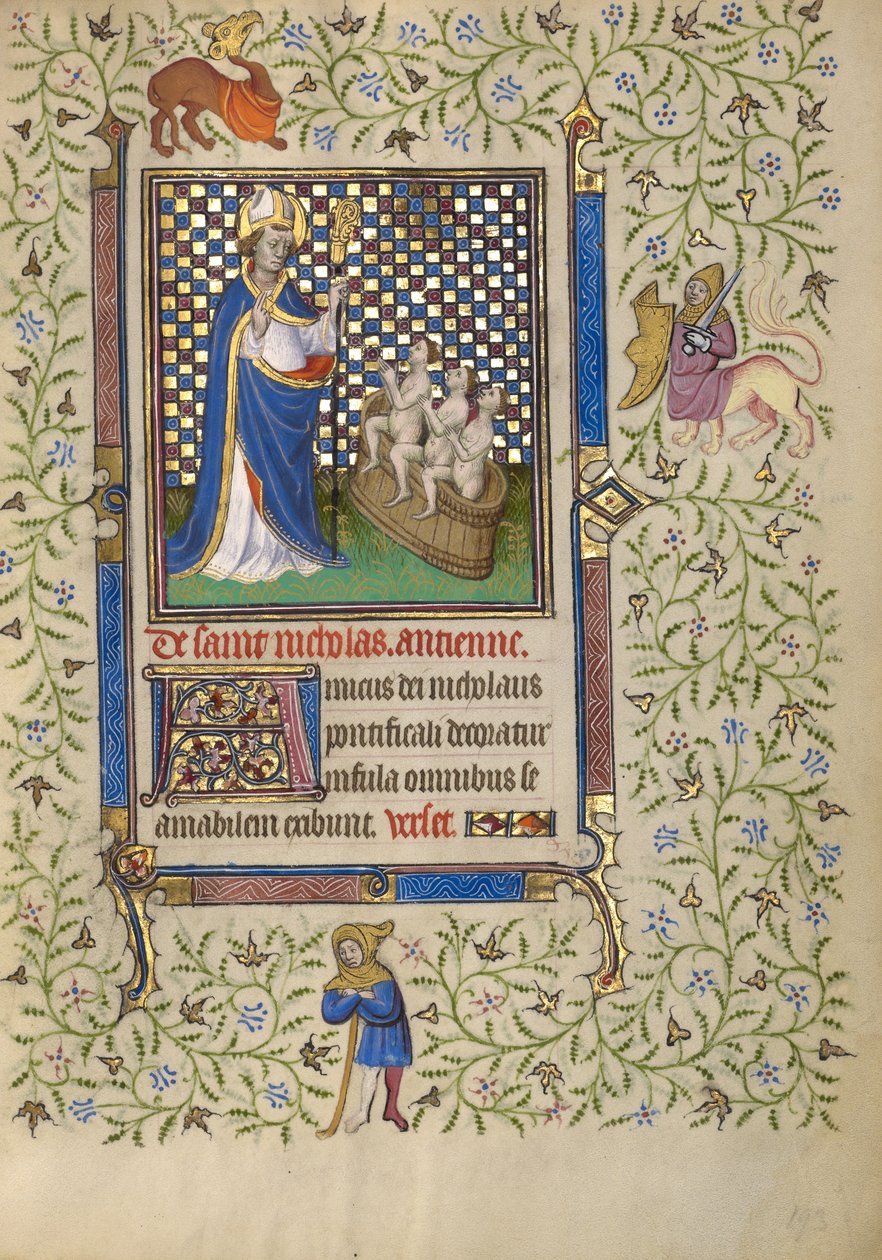 De saint nicholas. antienne.
Amicus dei nicholaus
pontificali decoratur
infula omnibus se
amabilem exibunt. Verset.
193